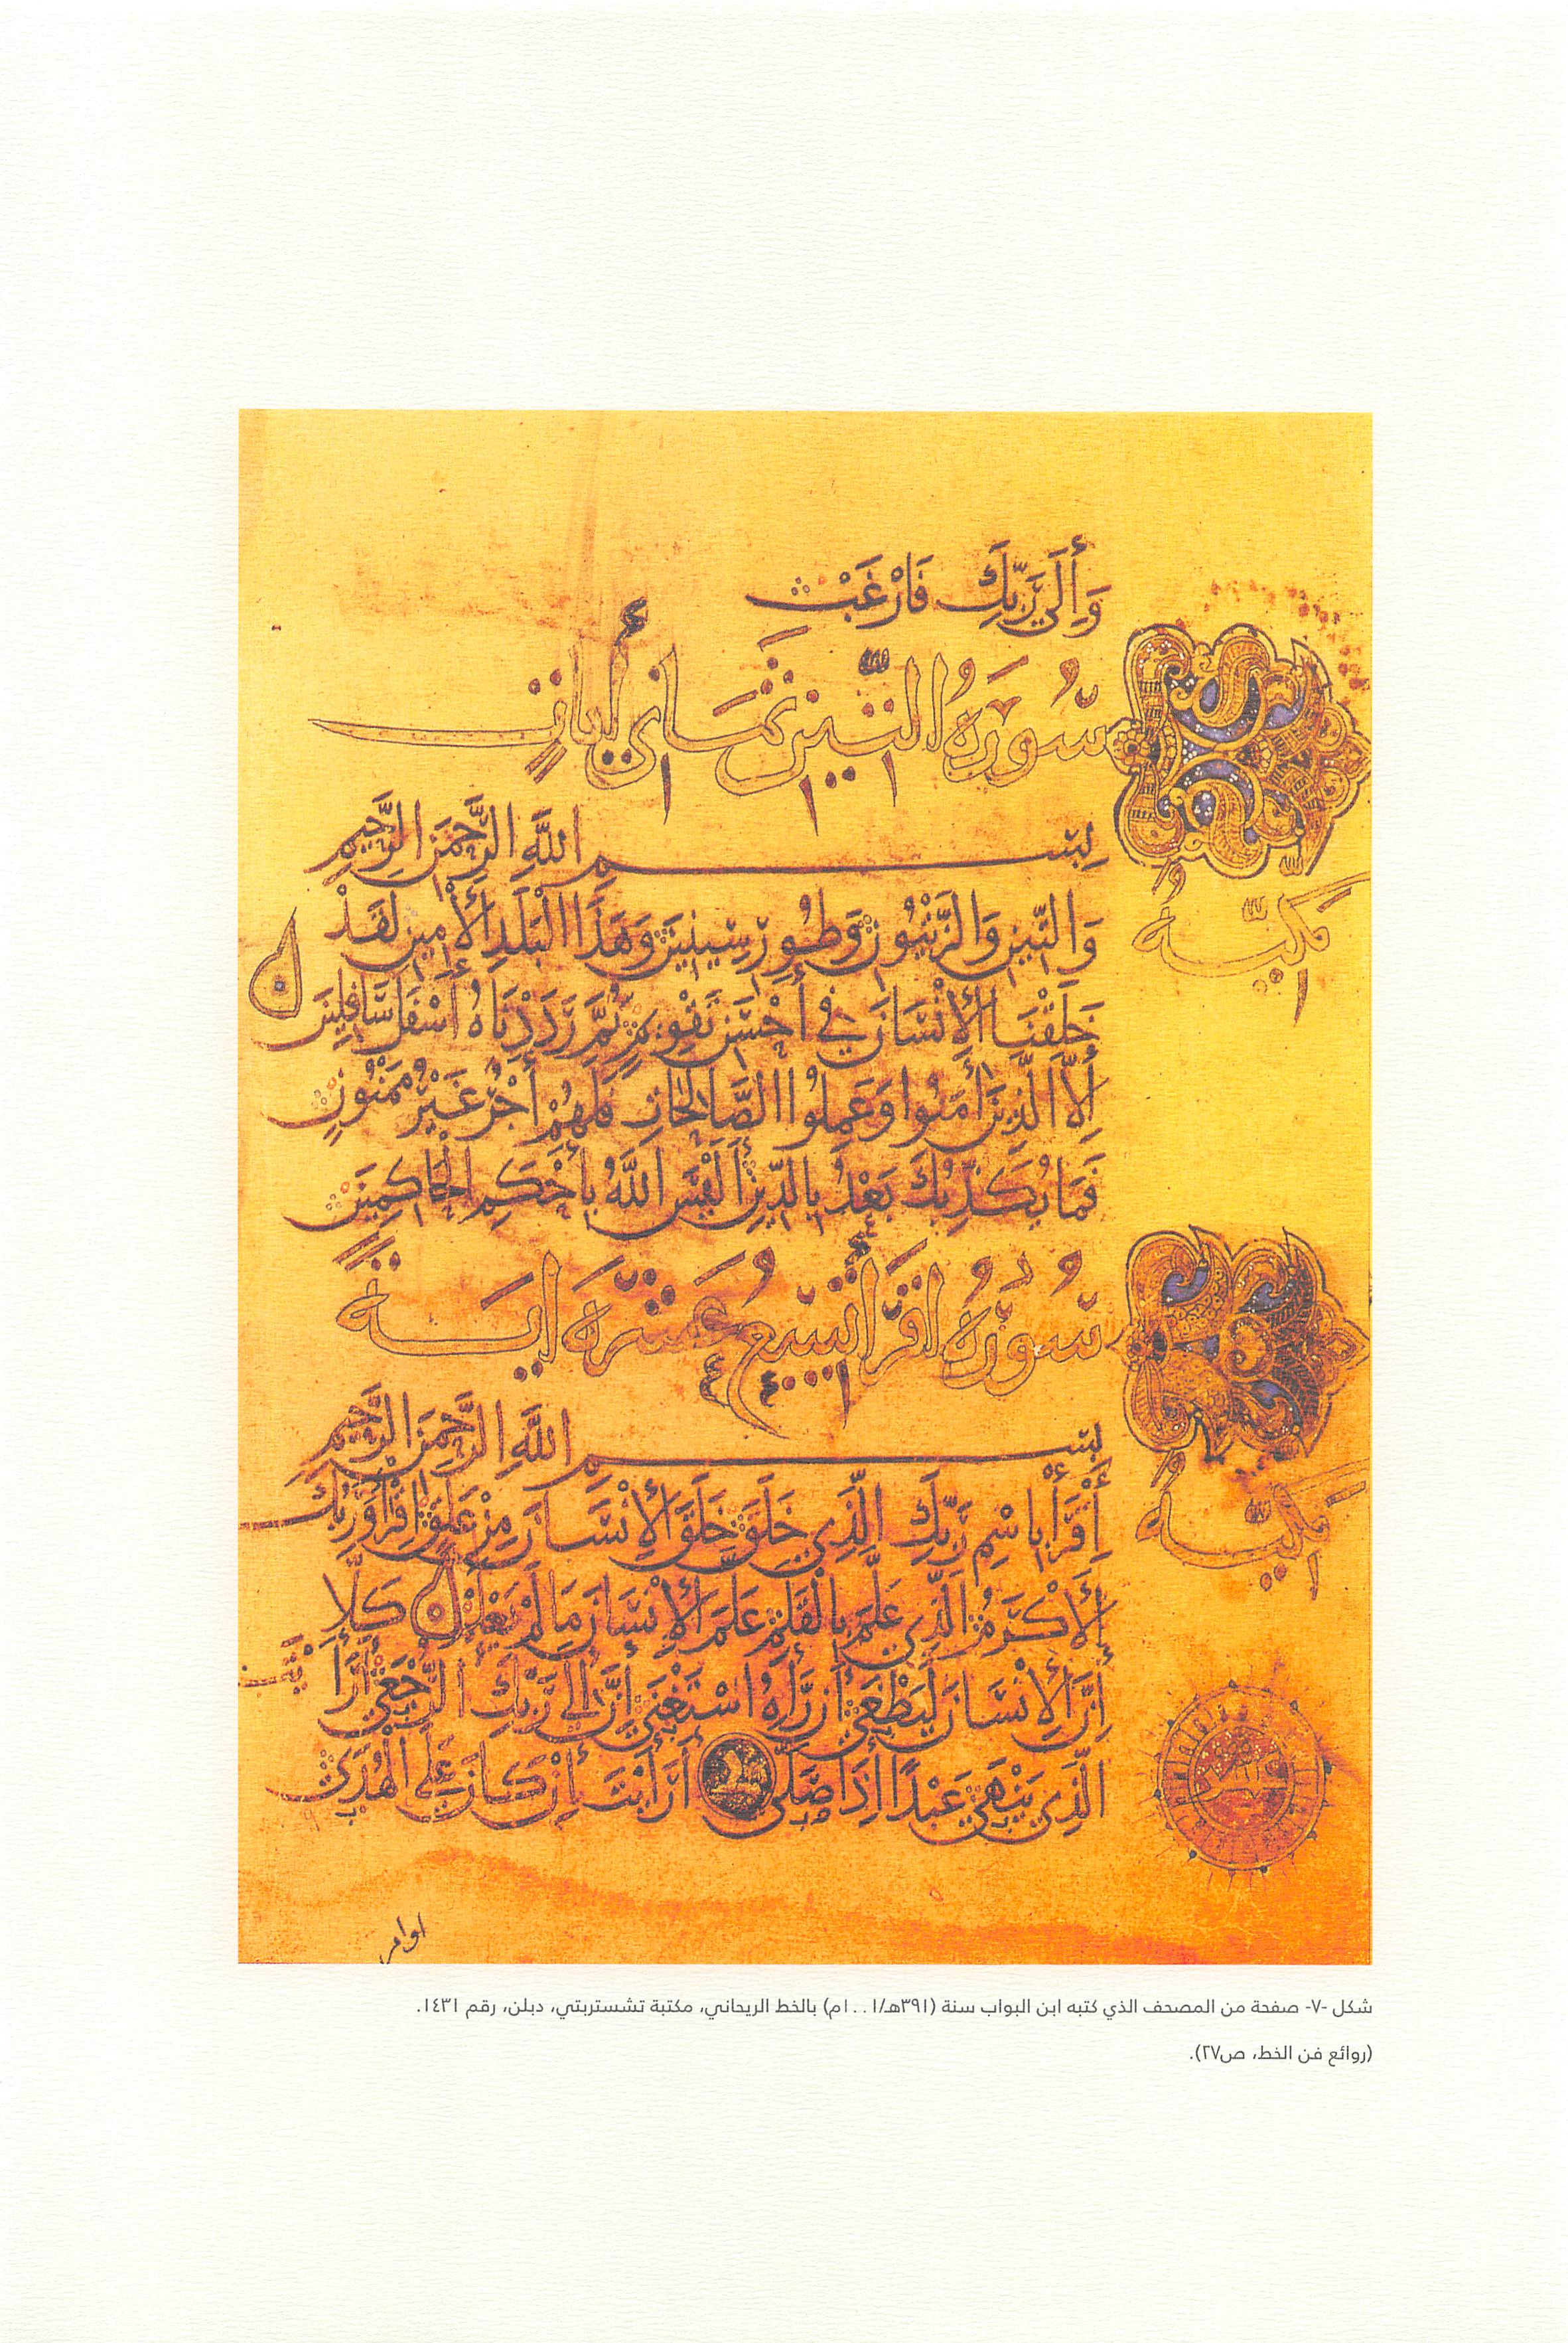 وَإِلَىٰ رَبِّكَ فَارْغَبْ
سُورَةُ التِّينِ ثَمَانِي أَيَاتٍ
مَكِّيَّةٌ
بِسْمِ اللَّهِ الرَّحْمَنِ الرَّحِيمِ
وَالتِّينِ وَالزَّيْتُونِ وَطُورِ سِينِينَ وَهَذَا الْبَلَدِ الْأَمِينِ لَقَدْ
خَلَقْنَا الْإِنْسَانَ فِي أَحْسَنِ تَقْوِيمٍ ثُمَّ رَدَدْنَاهُ أَسْفَلَ سَافِلِينَ
إِلَّا الَّذِينَ أَمَنُوا وَعَمِلُوا الصَّالِحَاتِ فَلَهُمْ أَجْرٌ غَيْرُ مَمْنُونٍ
فَمَا يُكَذِّبُكَ بَعْدُ بِالدِّينِ أَلَيْسَ اللَّهُ بِأَحْكَمِ الْحَاكِمِينَ
سُورَةُ اقْرَأْ تِسْعَ عَشْرَةَ ايَةً
مَكِّيَّةٌ
بِسْمِ اللَّهِ الرَّحْمَنِ الرَّحِيمِ
اقْرَأْ بِاسْمِ رَبِّكَ الَّذِي خَلَقَ خَلَقَ الْإِنْسَانَ مِنْ عَلَقٍ اقْرَأْ وَرَبُّكَ
الْأَكْرَمُ الَّذِي عَلَّمَ بِالْقَلَمِ عَلَّمَ الْإِنْسَانَ مَا لَمْ يَعْلَمْ كَلَّا
إِنَّ الْإِنْسَانَ لَيَطْغَى أَنْ رَأَهُ اسْتَغْنَى إِنَّ إِلَى رَبِّكَ الرُّجْعَى أَرَأَيْتَ
الَّذِي يَنْهَى عَبْدًا إِذَا صَلَّى أَرَأَيْتَ إِنْ كَانَ عَلَى الْهُدَى
اوامر
شكل -٧- صفحة من المصحف الذي كتبه ابن البواب سنة (٣٩١هـ/١٠٠١م) بالخط الريحاني، مكتبة تشستربتي، دبلن، رقم ١٤٣١.
(روائع فن الخط، ص٢٧).